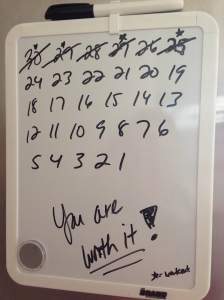 30 29 28 27 26 25
24 23 22 21 20 19
18 17 16 15 14 13
12 11 10 9 8 7 6
5 4 3 2 1
You are
worth it!
*- worked